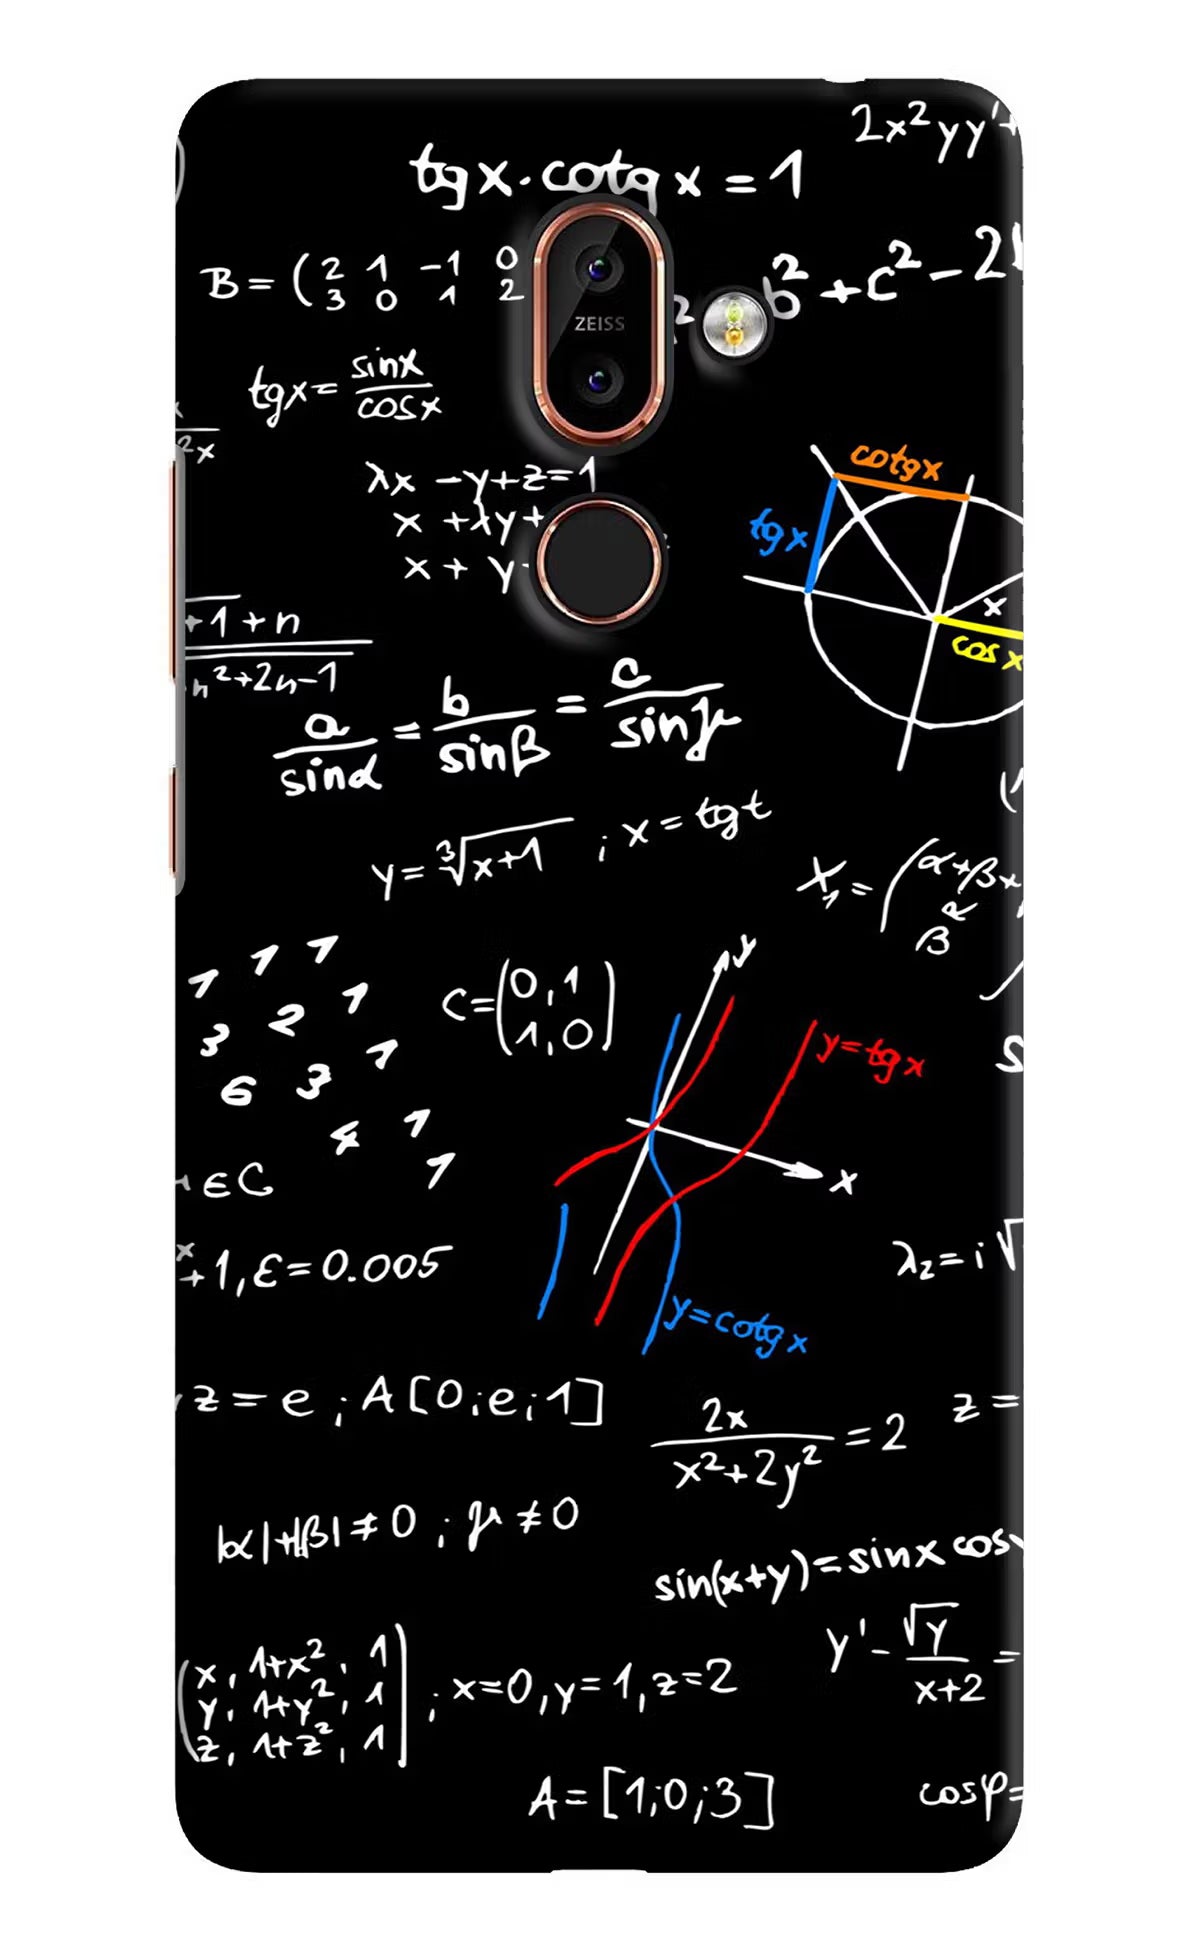 2x²yy'+
tgx·cotgx=1
B=(2 1 -1 0
3 0 1 2
² b²+c²-2
ZEISS
tgx=sinx/cosx
2x
λx-y+z=1
x+λy+
x+y
cotgx
tgx
x
cosx
+1+n
n²+2n-1
a/sinα=b/sinβ=c/sinγ
y=∛x+1 ; x=tgt
X₁=(α+β+
β
1 1 1
3 2 1
6 3 1
4 1
1
C=(0,1
1,0)
y
y=tgx
x
y=cotgx
εC
+1,ε=0.005
λ₂=i√
z=e ; A[0;e;1]
2x/x²+2y²=2
z=
|α|+|β|≠0 ; μ≠0
sin(x+y)=sinx cos
y'-√y/x+2=
(x, 1+x², 1
y, 1+y², 1
z, 1+z², 1) ; x=0,y=1,z=2
A=[1;0;3]
cosφ=